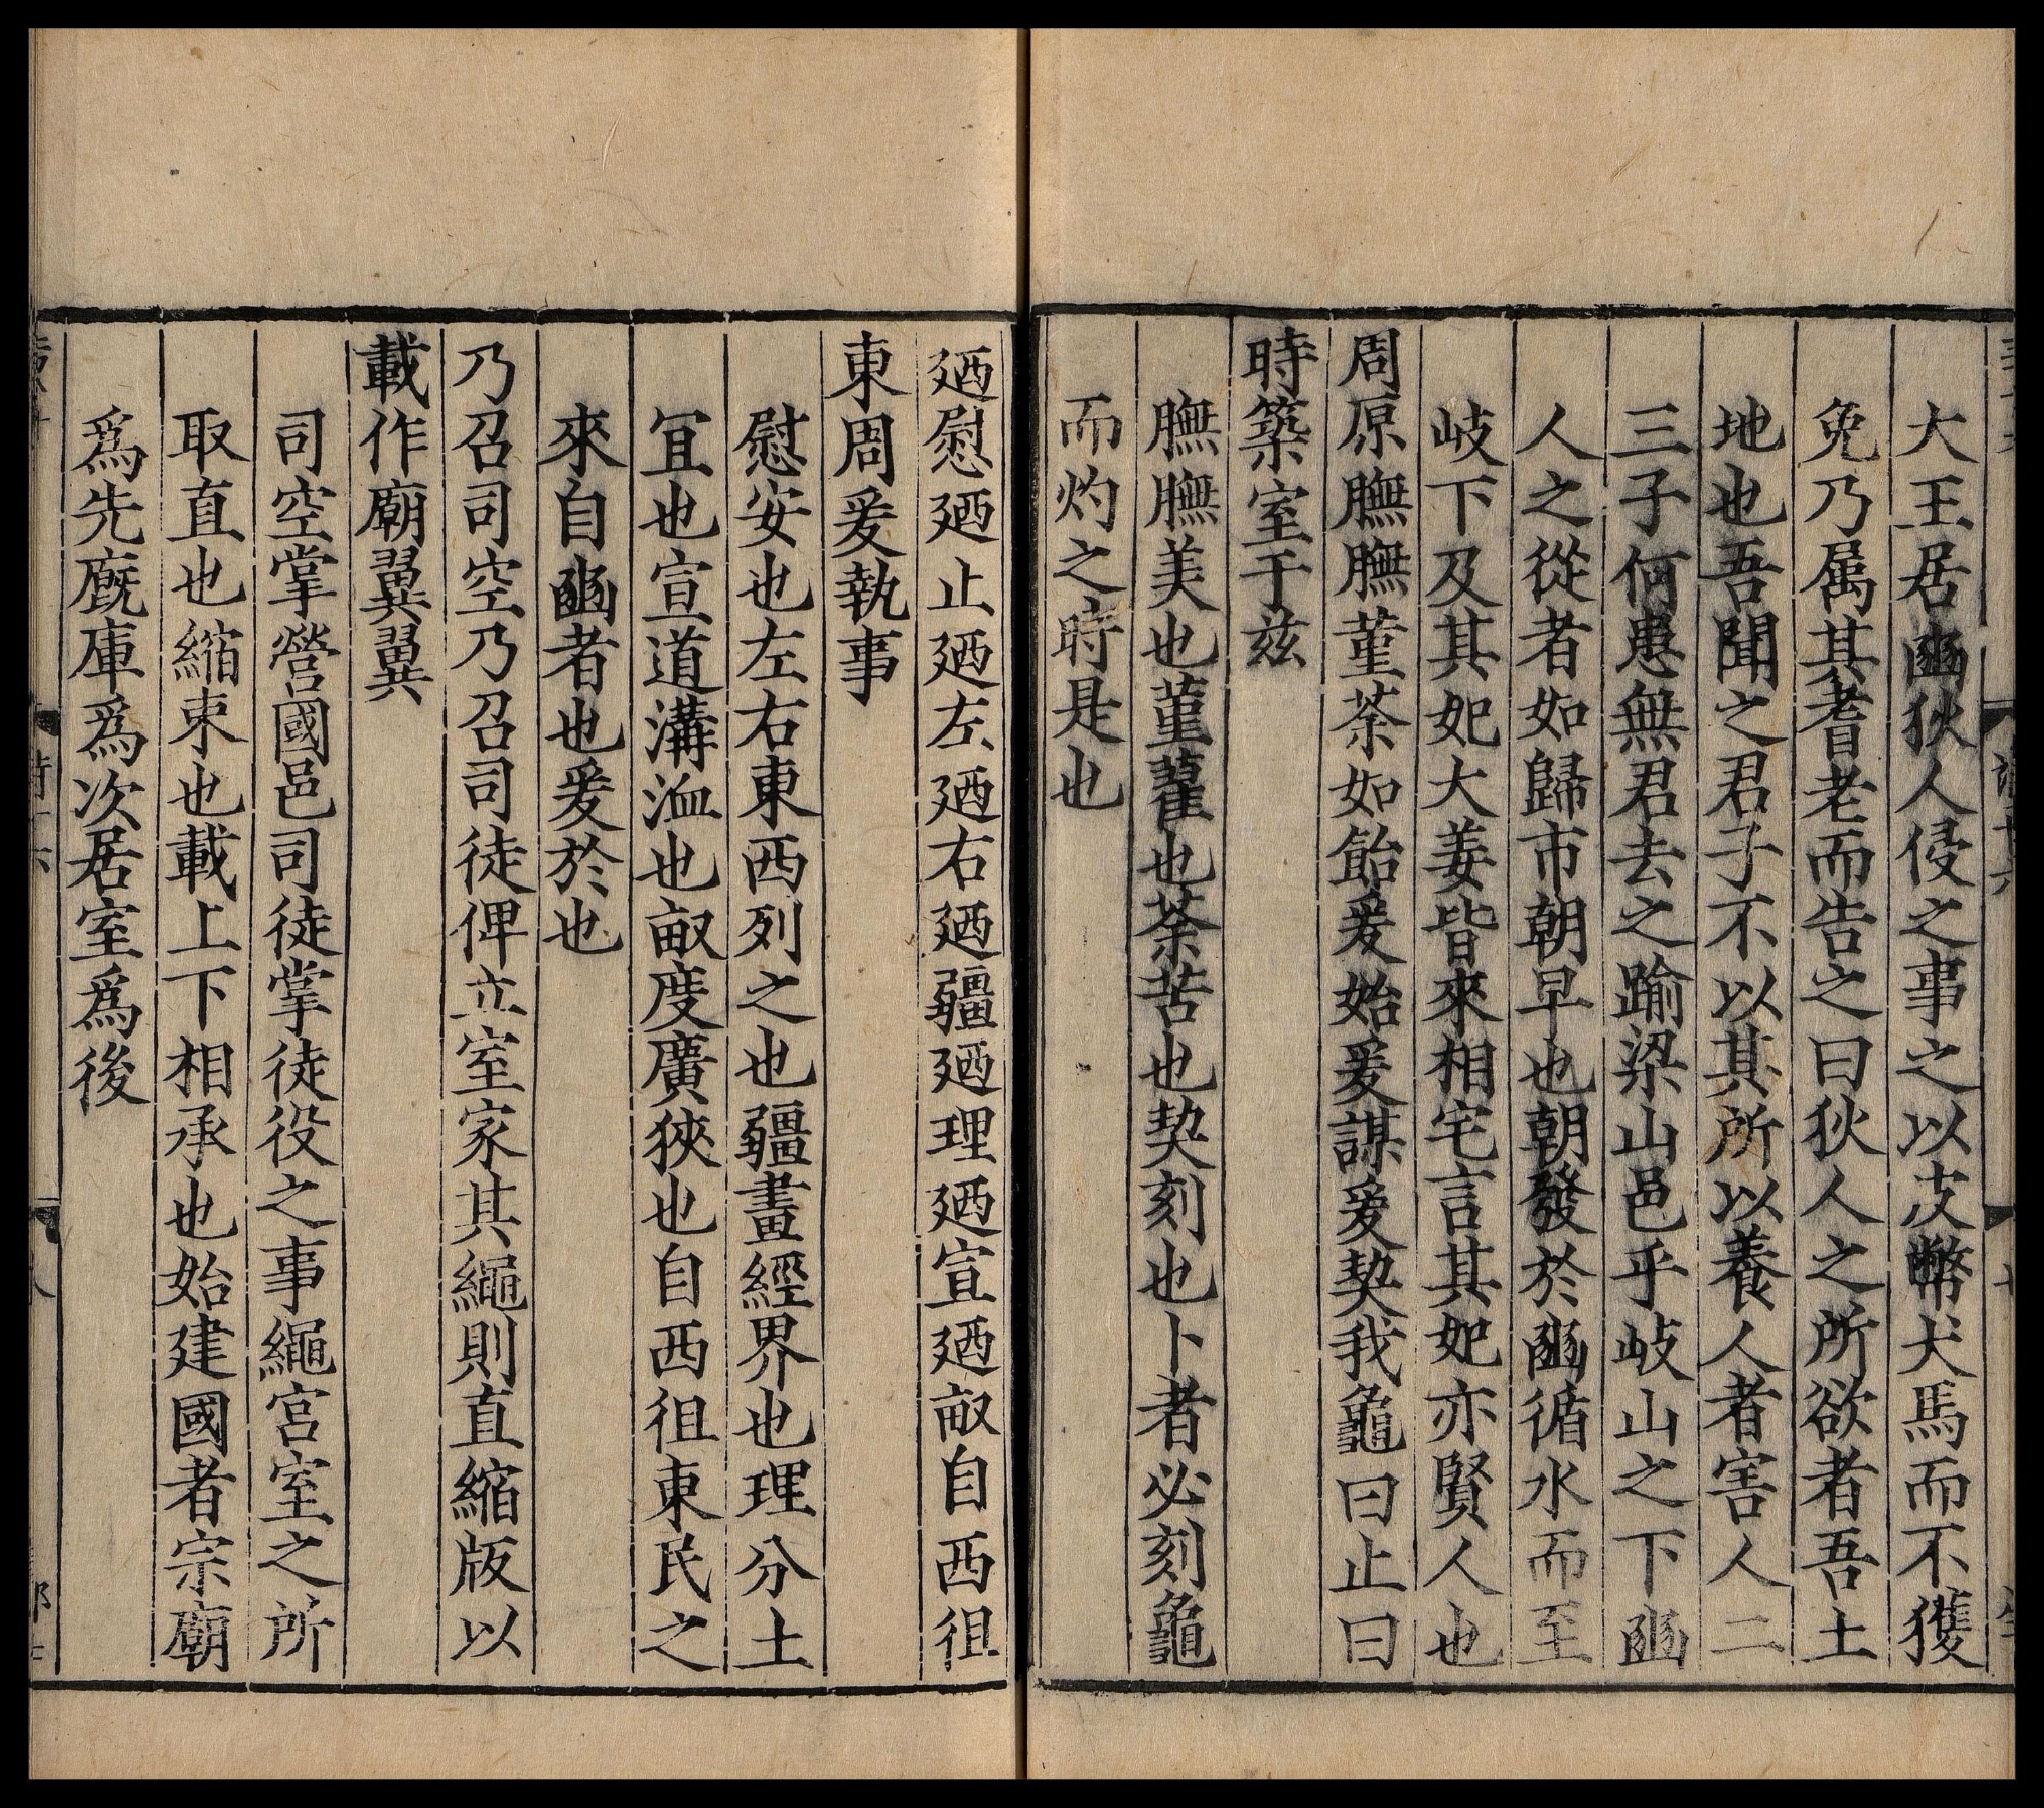 大王居豳狄人侵之事之以皮幣犬馬而不獲
免乃属其耆老而告之曰狄人之所欲者吾土
地也吾聞之君子不以其所以養人者害人二
三子何患無君去之踰梁山邑乎岐山之下豳
人之從者如歸市朝早也朝發於豳循水而至
岐下及其妃大姜皆來相宅言其妃亦賢人也
周原膴膴菫荼如飴爰始爰謀爰契我龜曰止曰
時築室于兹
膴膴美也菫藋也荼苦也契刻也卜者必刻龜
而灼之時是也
廼慰廼止廼左廼右廼疆廼理廼宣廼畝自西徂
東周爰執事
慰安也左右東西列之也疆畫經界也理分土
宜也宣道溝洫也畝度廣狹也自西徂東民之
來自豳者也爰於也
乃召司空乃召司徒俾立室家其繩則直縮版以
載作廟翼翼
司空掌營國邑司徒掌徒役之事繩宮室之所
取直也縮束也載上下相承也始建國者宗廟
爲先廐庫爲次居室爲後